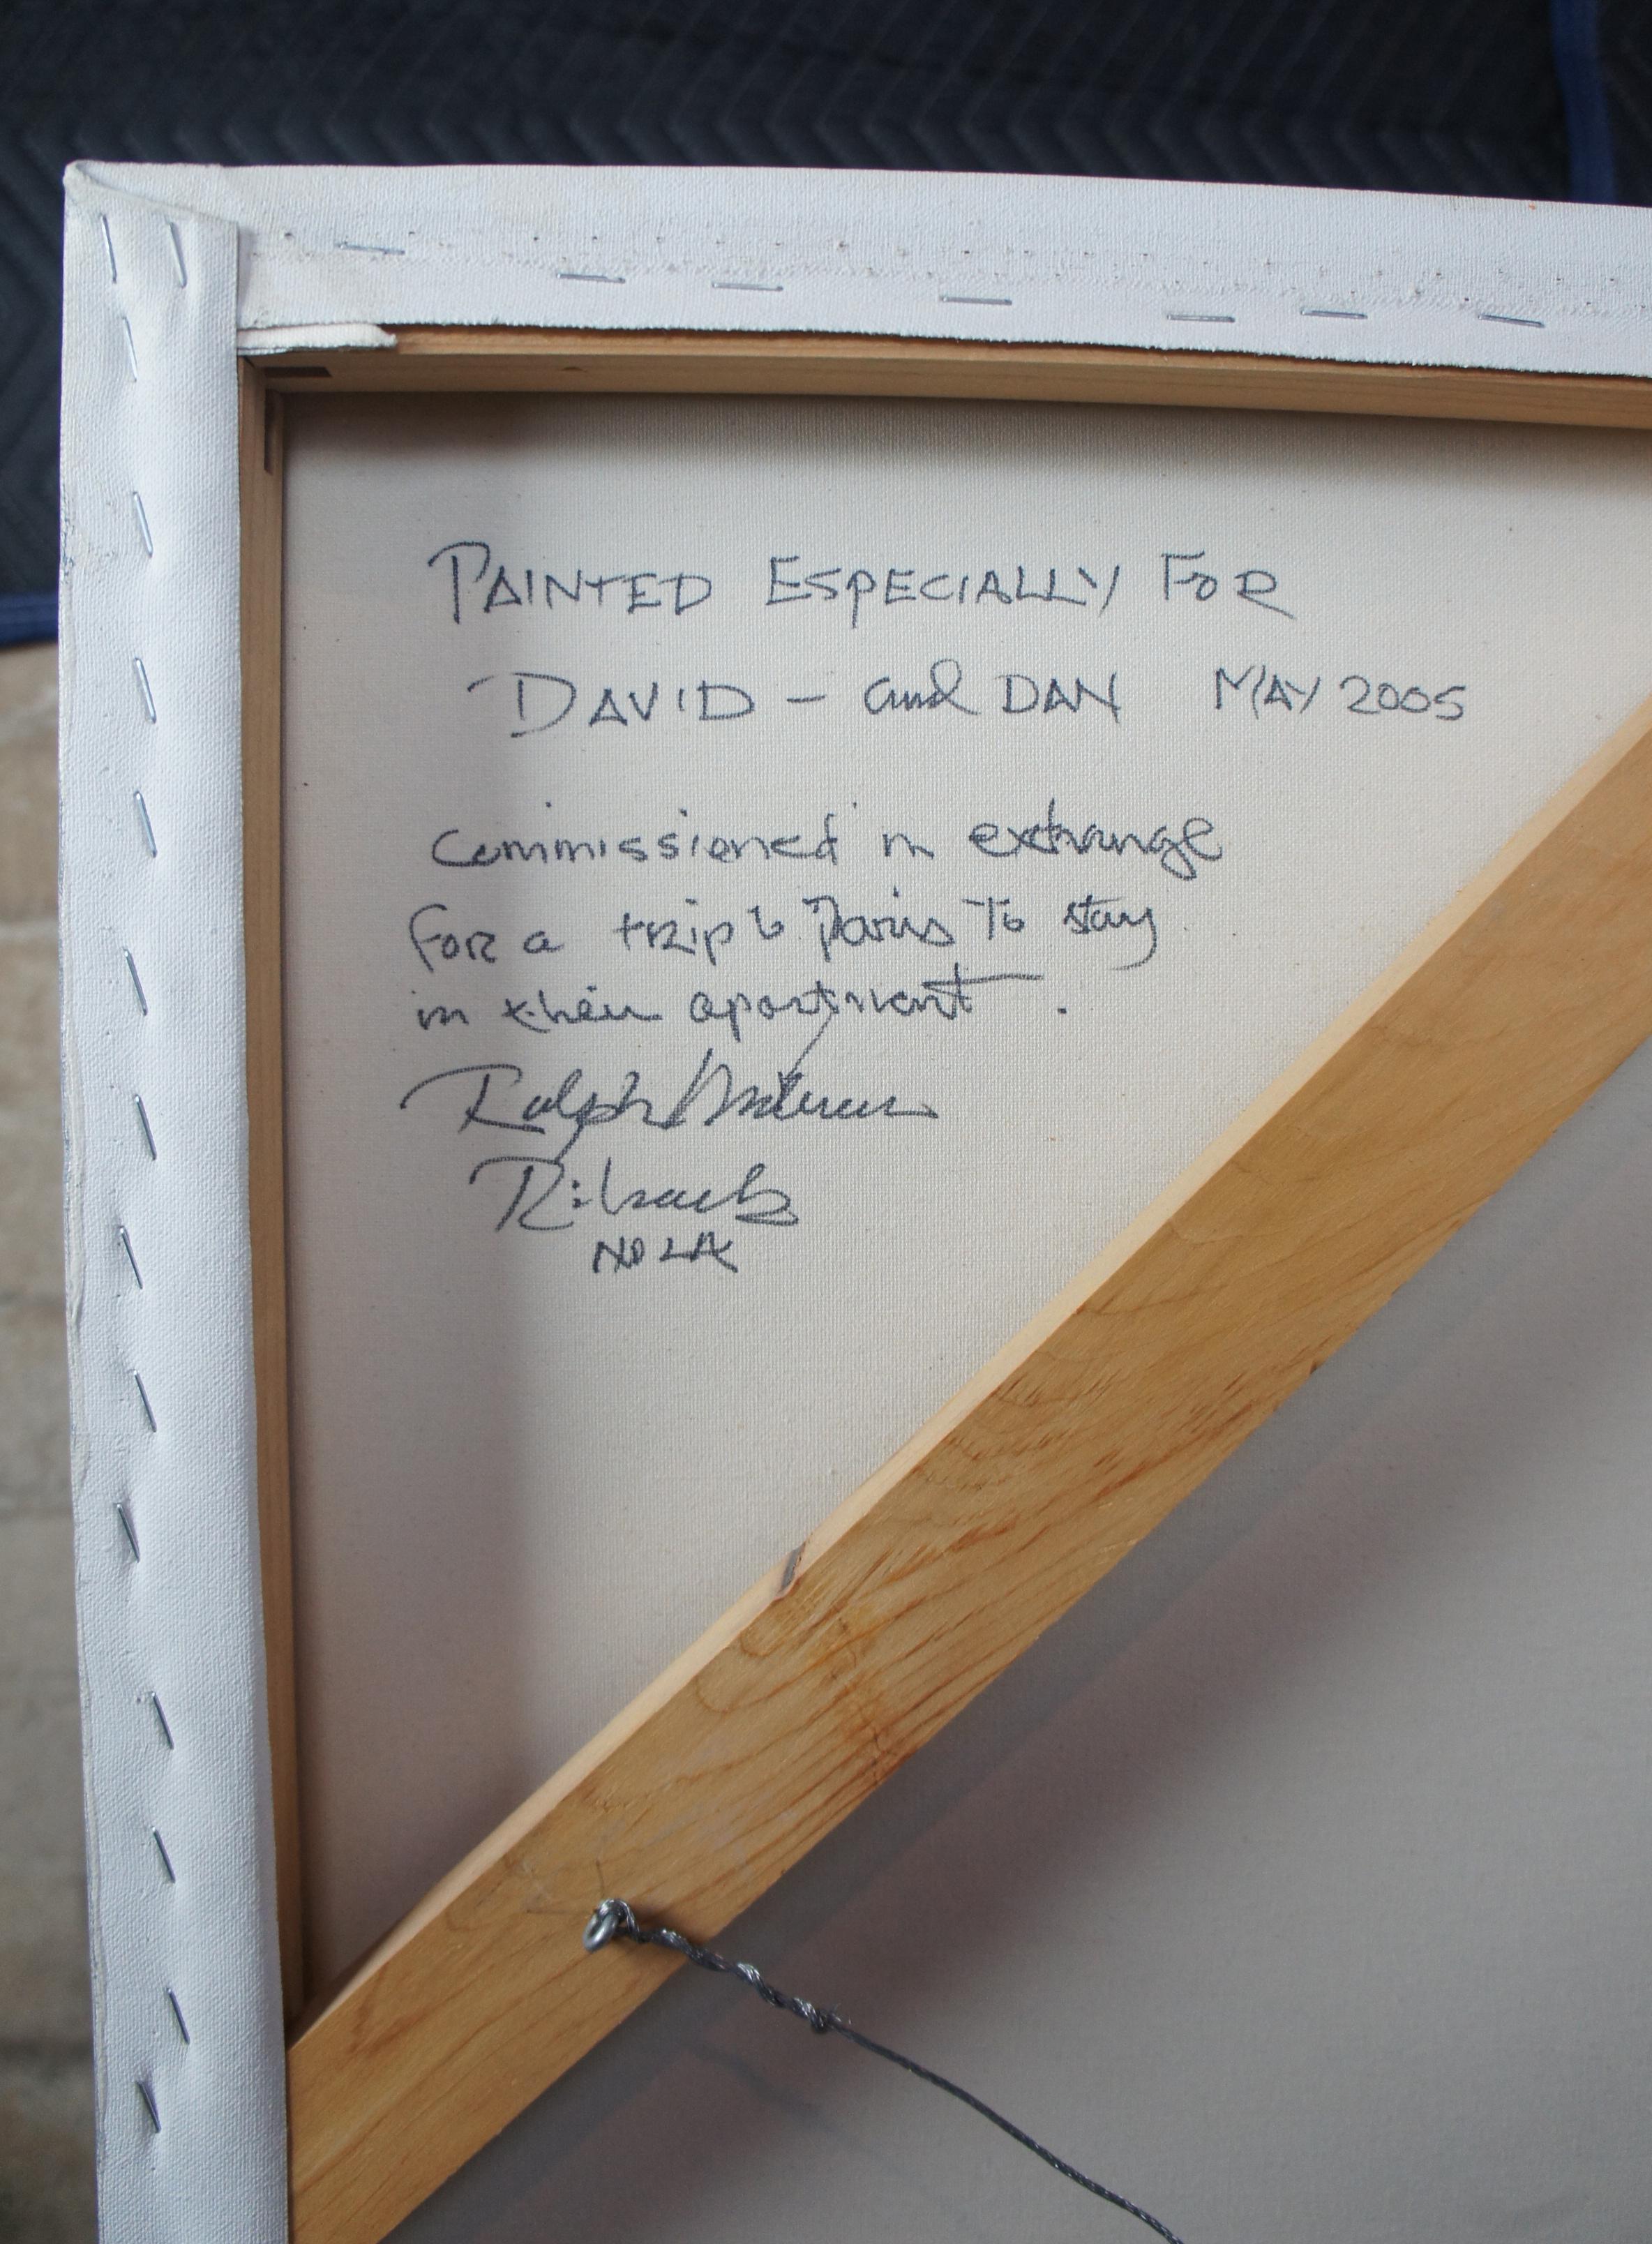 PAINTED ESPECIALLY FOR
DAVID – and DAN MAY 2005
Commissioned in exchange
for a trip to Paris To stay
in their apartment.
Ralph
NOLA